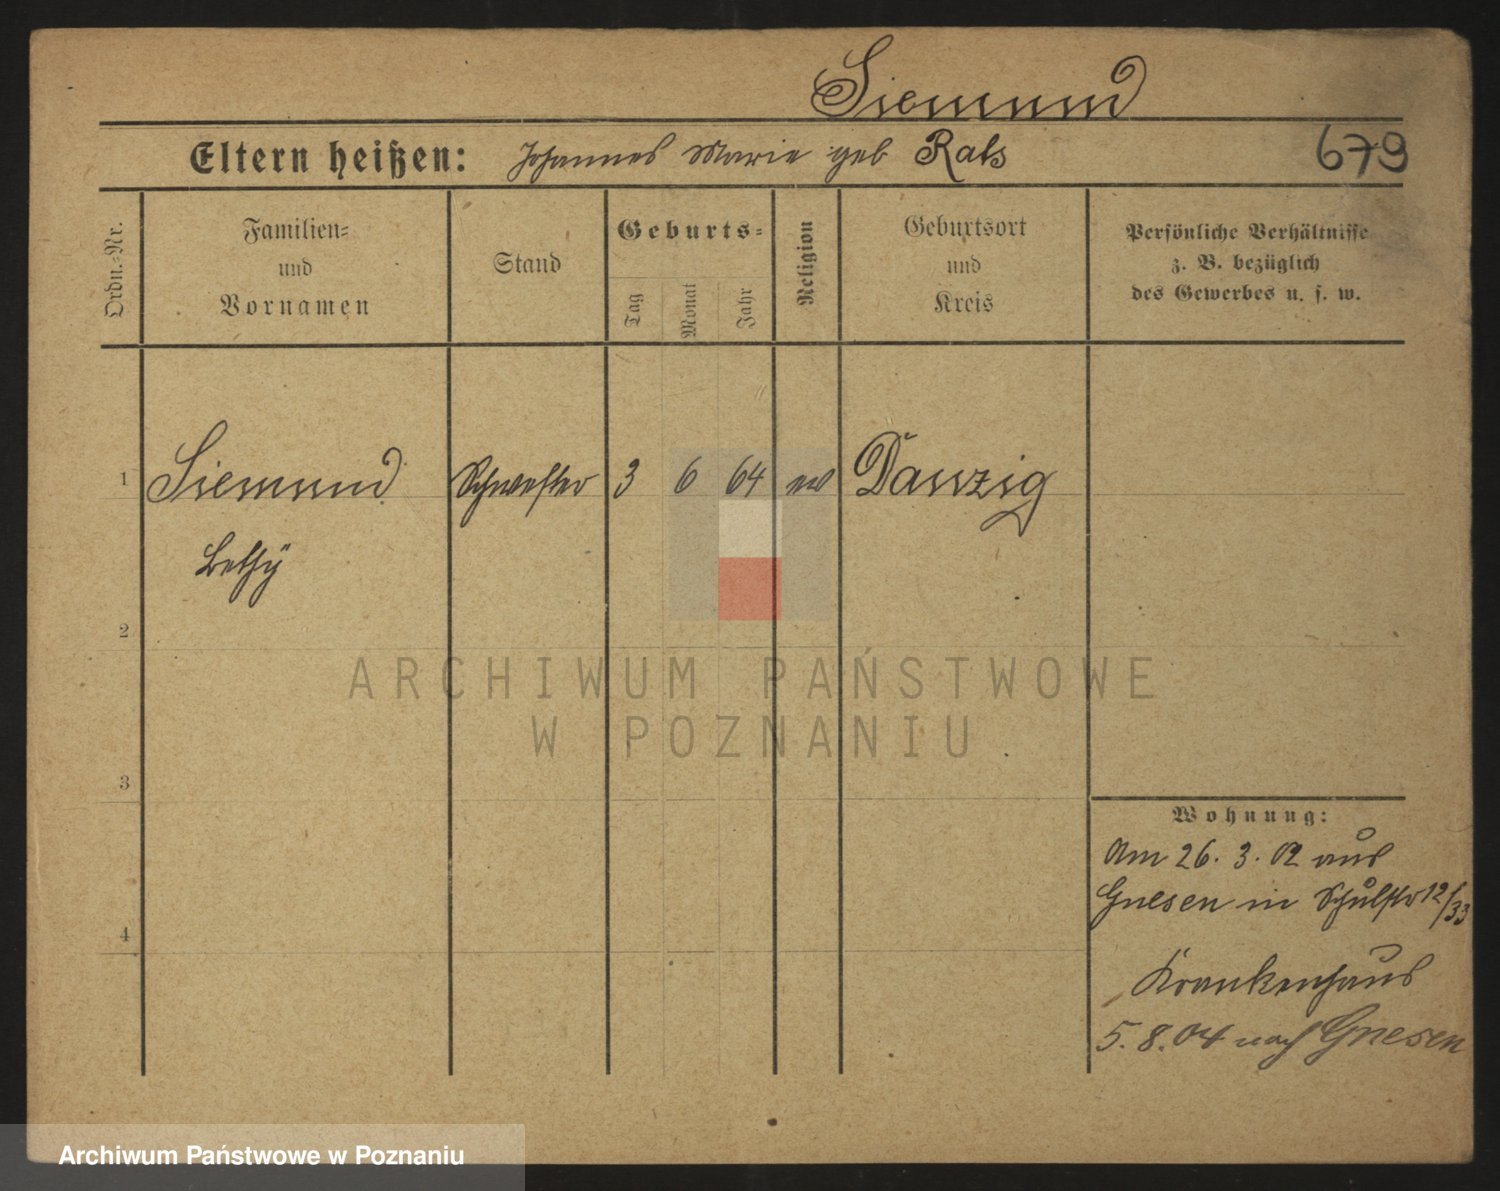 Siemund
Eltern heißen: Johannes Marie geb Rats
679
Ordn.-Nr.
Familien-
und
Vornamen
Stand
Geburts-
Tag
Monat
Jahr
Religion
Geburtsort
und
Kreis
Persönliche Verhältnisse
z. B. bezüglich
des Gewerbes u. s. w.
1
Siemund Schwester 3 6 64 ev Danzig
Bethy
2
ARCHIWUM PAŃSTWOWE
W POZNANIU
3
Wohnung:
Am 26. 3. 02 aus
Gnesen in Schulstr 12/33
4
Krankenhaus
5. 8. 04 nach Gnesen
Archiwum Państwowe w Poznaniu